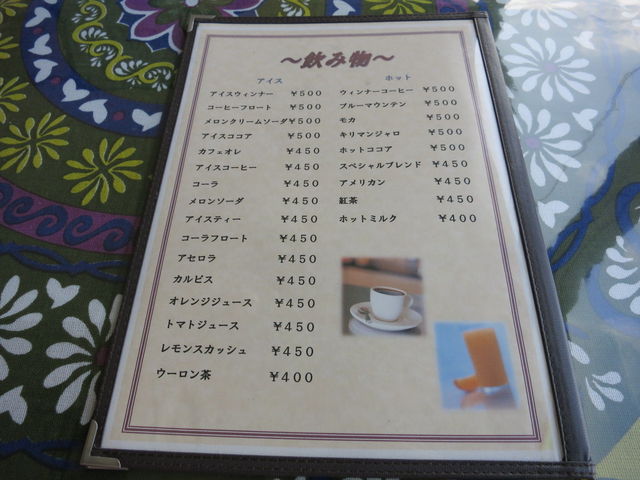 ～飲み物～
アイス
アイスウィンナー ￥500
コーヒーフロート ￥500
メロンクリームソーダ￥500
アイスココア ￥500
カフェオレ ￥450
アイスコーヒー ￥450
コーラ ￥450
メロンソーダ ￥450
アイスティー ￥450
コーラフロート ￥450
アセロラ ￥450
カルピス ￥450
オレンジジュース ￥450
トマトジュース ￥450
レモンスカッシュ ￥450
ウーロン茶 ￥400
ホット
ウィンナーコーヒー ￥500
ブルーマウンテン ￥500
モカ ￥500
キリマンジャロ ￥500
ホットココア ￥500
スペシャルブレンド ￥450
アメリカン ￥450
紅茶 ￥450
ホットミルク ￥400